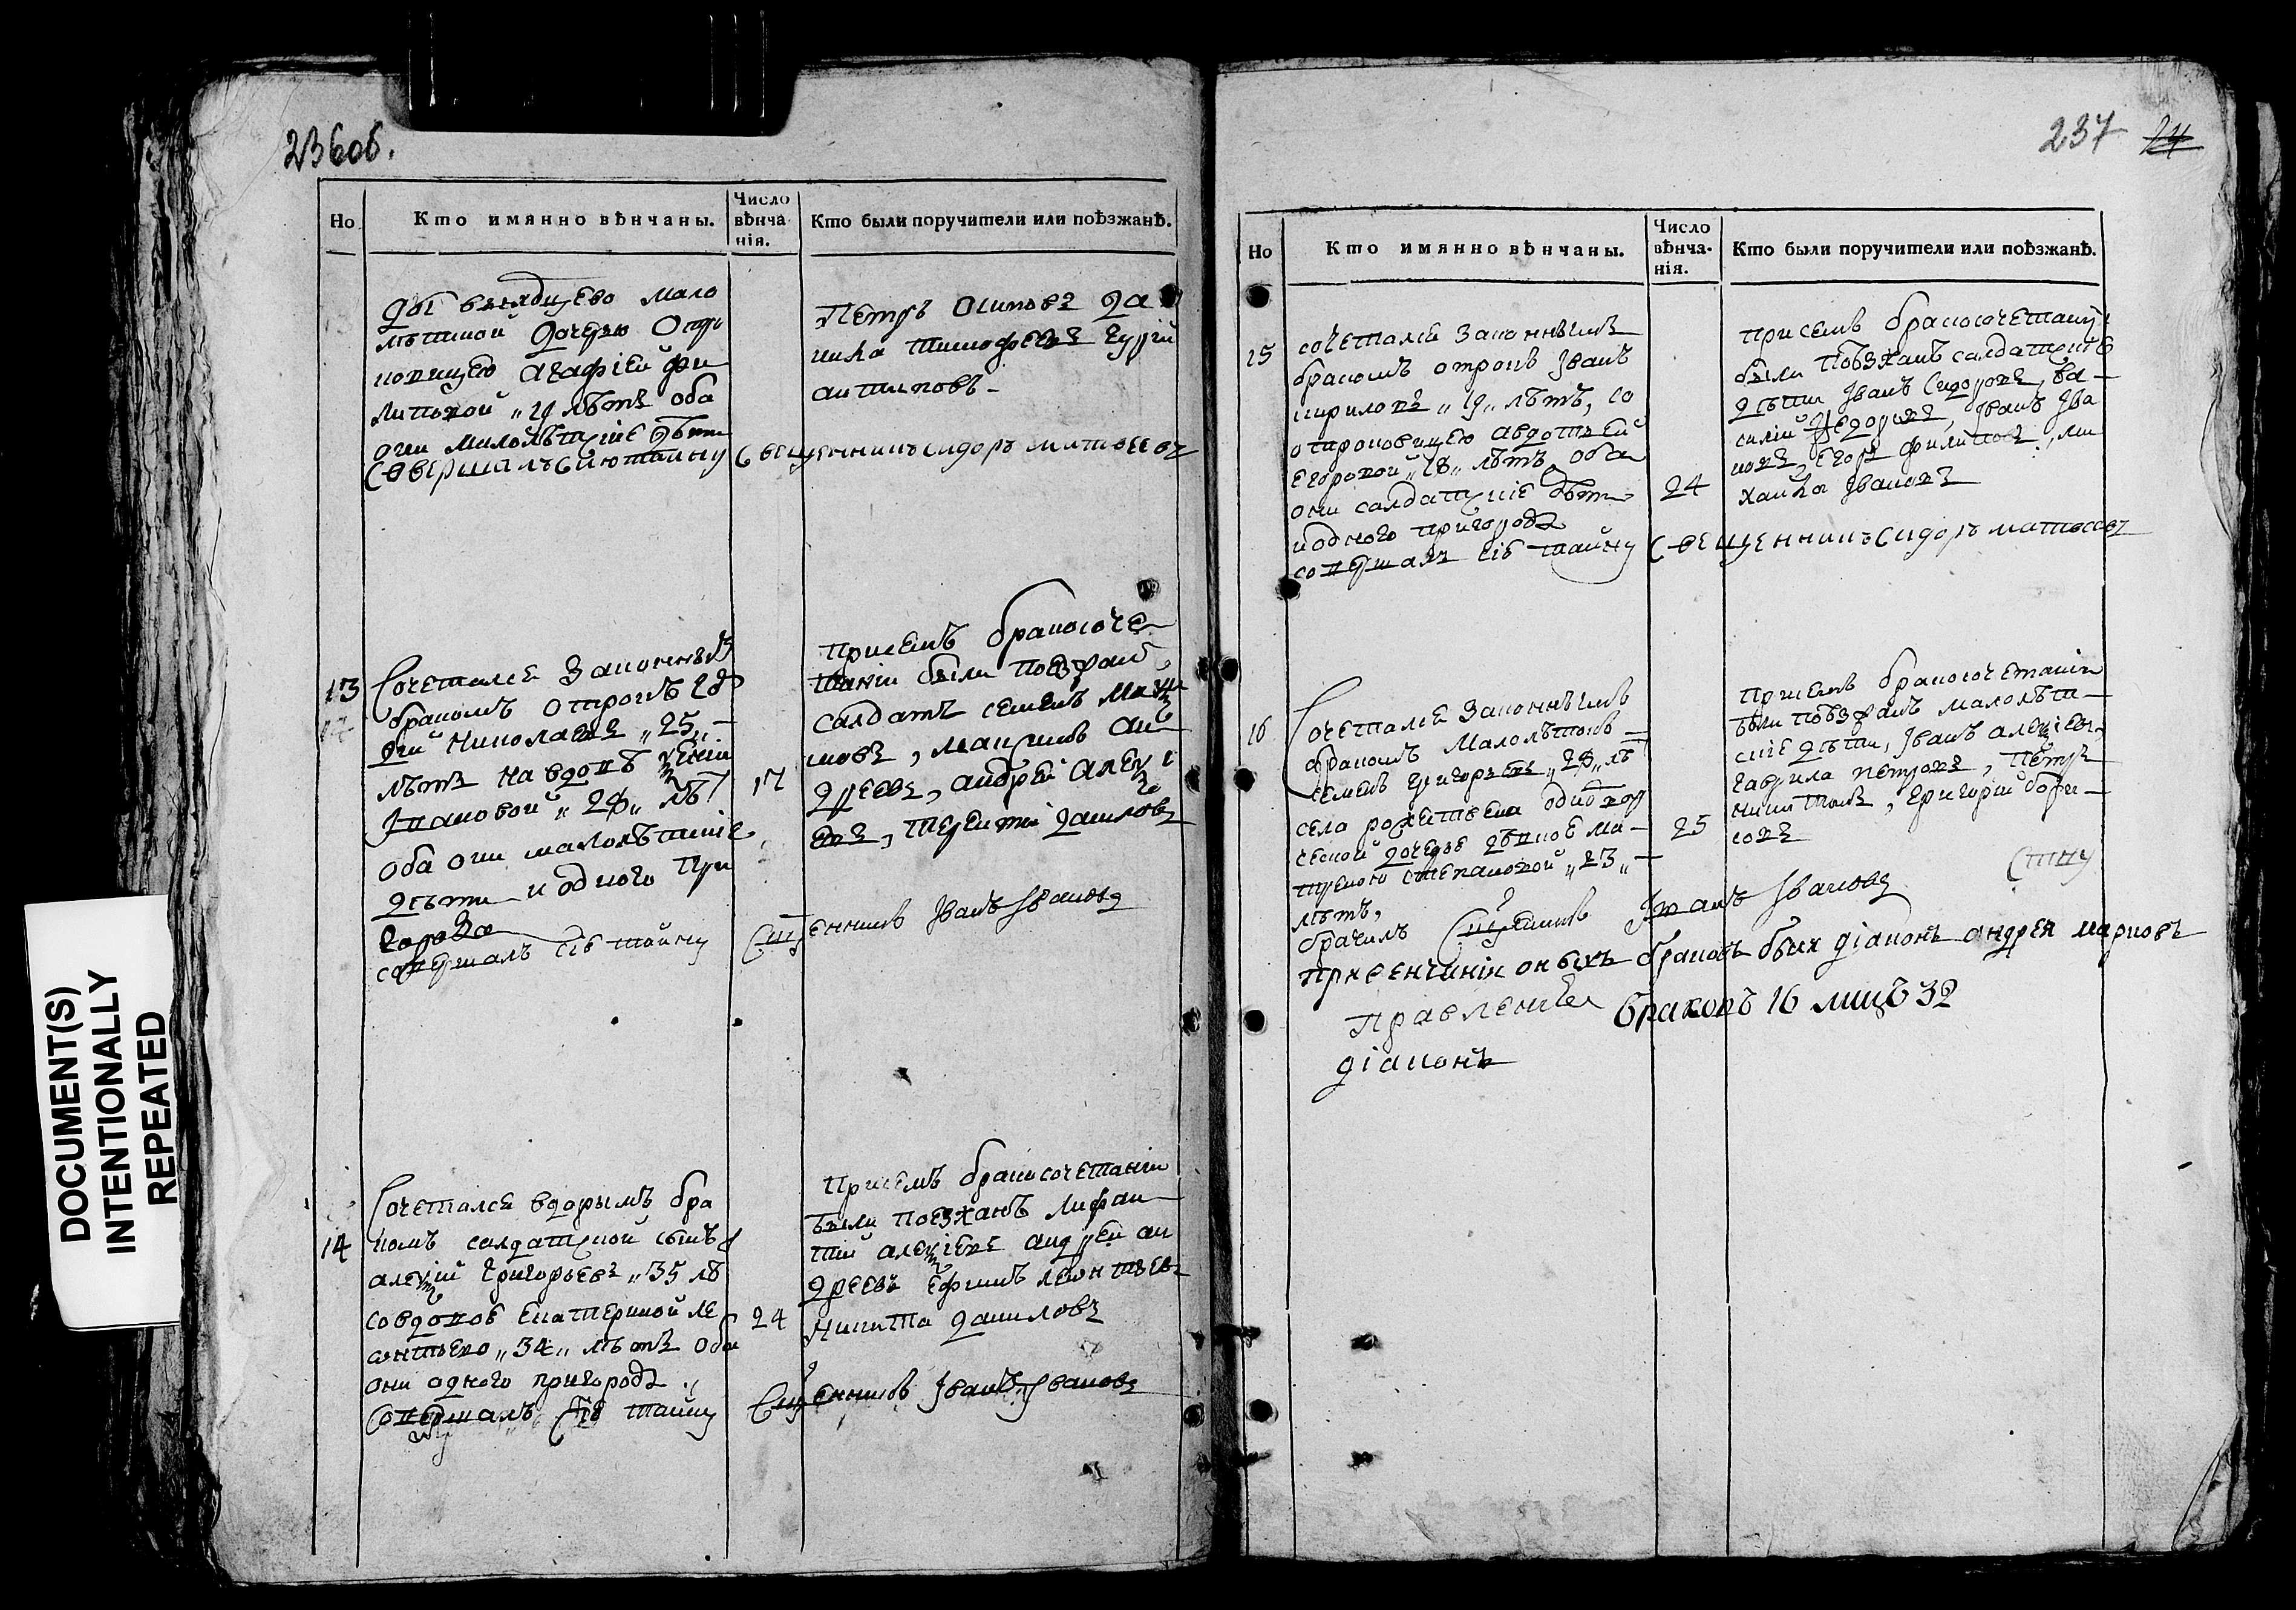 236об.
Но
Кто имянно вѣнчаны.
Число
вѣнча
нія.
Кто были поручители или поѣзжанѣ.
мало
лѣтной дочерью Отро
ковицею Агафіей Фи
липовой „ 19 лѣтъ оба
они малолѣтніе дѣти
Совершалъ сию тайну Священникъ Сидоръ Матвеевъ
Петръ Осиповъ Да
нила Тимофеевъ
антиповъ
13
Сочетался Законнымъ
бракомъ Отрокъ
Николаевъ „ 25 „
лѣтъ на вдовѣ
Ивановой „ 28 „ лѣт
оба они малолѣтніе
дѣти и одного При
города
совершалъ сіе тайну
17
При семъ бракосоче
таніи были Поезжан
Салдатъ Семенъ
Ан
дреевъ, Андрей Алексі
евъ, Терентій Даниловъ
Священникъ Іванъ Івановъ
14
Сочетался вторымъ бра
комъ салдатской сынъ
алексій Григорьевъ „ 35 лѣ
со вдовой Екатериной Ле
онтьево „ 34 „ лѣтъ Оба
они одного пригорода
Совершалъ Сіе тайну
24
При семъ бракосочетаніи
были поезжанѣ
алексіевъ андрей ан
дреевъ Ефимъ леонтьевъ
Никита Даниловъ
Священникъ Іванъ Івановъ
237 24
Но
Кто имянно вѣнчаны.
Число
вѣнча-
нія.
Кто были поручители или поѣзжанѣ.
15
сочетался Законнымъ
бракомъ отрокъ Іванъ
кириловъ „ 19 „ лѣтъ, со
отроковицею авдотьей
Егоровой „ 18 „ лѣтъ оба
они салдатскіе дѣти
и одного пригорода
совершалъ сіе тайну Священникъ Сидоръ Матвеевъ
24
при семъ бракосочетаніи
были Поѣзжанѣ салдатскіе
дѣти Іванъ Сидоровъ, Ва
силій Федоровъ, Іванъ Іва
новъ, Егоръ Филиповъ, ми
хайла Івановъ
16
Сочетался Законнымъ
бракомъ Малолѣтокъ
Семенъ Григорьевъ „ 28 „ лѣ
села рожествена
дочерью
Степановой „ 23 „
лѣтъ,
брачилъ Священникъ Іванъ Івановъ
25
При семъ бракосочетаніи
были поѣзжанѣ малолѣт
скіе дѣти, Іванъ алексіевъ,
гаврила петровъ, Петръ
никитинъ, Григорій Бори
совъ
При венчиніи оныхъ браковъ былъ діаконъ андрей марковъ
діаконъ
браковъ 16 лицъ 32
DOCUMENT(S)
INTENTIONALLY
REPEATED